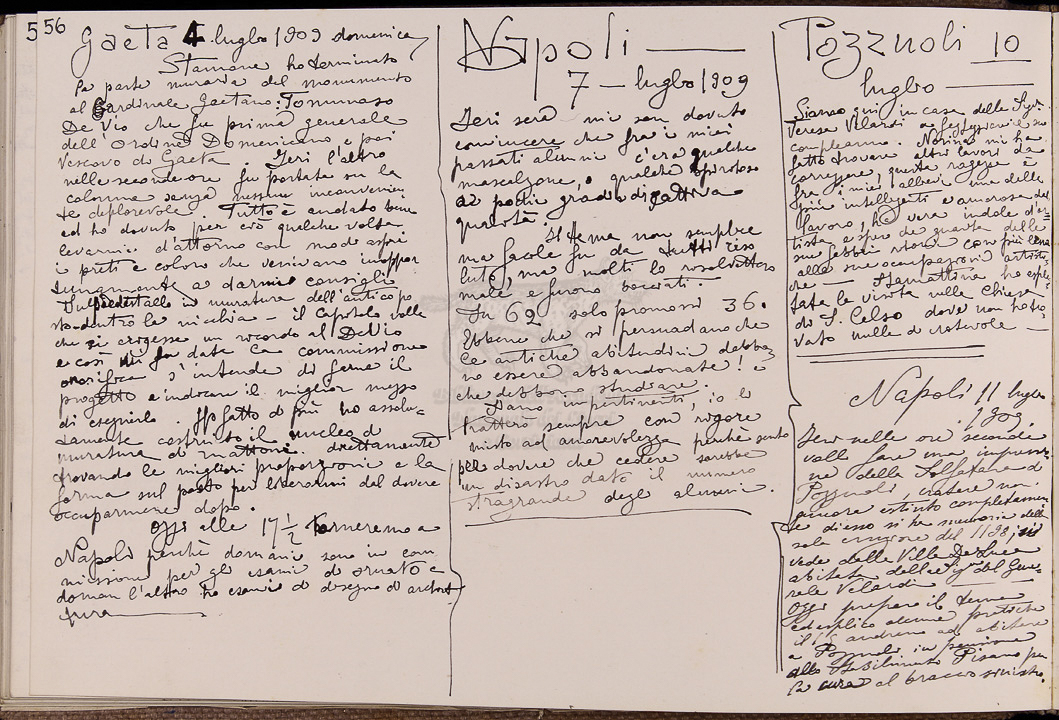 56
Gaeta 4 luglio 1909 domenica
Stamane ho terminato
la parte muraria del monumento
al Cardinale Gaetano: Tommaso
De Vio che fu prima generale
dell'Ordine Domenicano e poi
Vescovo di Gaeta. Jeri l'altro
nelle seconde ore fu portata su la
colonna senza nessun inconvenien
te deplorevole. Tutto è andato bene
ed ho dovuto per ciò qualche volta
levarmi d'attorno con modi aspri
i preti e coloro che venivano inoppor
tunamente a darmi consigli.
Il piedistallo in muratura dell'antico po
sto dentro la nicchia - il Capitolo volle
che si erigesse un ricordo al De Vio
e così mi fu data la commissione
onorifica s'intende di farne il
progetto e indicare il miglior mezzo
di eseguirlo. Ho fatto di più ho assolu-
tamente costruito il nucleo di
muratura di mattoni direttamente
trovando le migliori proporzioni e la
forma sul posto per liberarmi dal dovere
occuparmene dopo.
Oggi alle 17 1/2 torneremo a
Napoli perchè domani sono in com
missione per gli esami di ornato e
doman l'altro ho esami di disegno d'architet
tura
Napoli
7 - luglio 1909
Jeri sera mi son dovuto
convincere che fra i miei
passati alunni c'era qualche
mascalzone, o qualche spiritoso
ad pochi gradi di cattiva
qualità.
Il tema non semplice
ma facile fu da tutti riso
luto, ma molti lo risolvettero
male e furono bocciati.
Su 62 solo promossi 36.
Ebbene che si persuadano che
le antiche abitudini debba
no essere abbandonate! e
che debbono studiare.
Siano impertinenti, io li
tratterò sempre con rigore
misto ad amorevolezza perchè sento
pel dovere che cedere sarebbe
un disastro dato il numero
stragrande degli alunni.
Pozzuoli 10
luglio
Siamo qui in casa della Sig.
Teresa Velardi a festeggiare il suo
compleanno. Norina mi ha
fatto trovare altri lavori da
correggere, questa ragazza è
fra i miei allievi una delle
più intelligenti e amorose del
lavoro, ha vera indole d'ar
tista
alle sue occupazioni artisti
che - Stamattina ho esple
tato la visita nelle chiese
di S. Celso dove non ho tro
vato nulla di notevole
Napoli 11 luglio
1909.
Jeri nelle ore seconde
volli fare una impressio
ne della Solfatara di
Pozzuoli, cratere non
ancora estinto completamen
te di esso si ha memoria della
sola eruzione del 1198,
vede dalla Villa De Luca
abitata dalla Sig. del Gene-
rale Velardi
Oggi preparo il tema
ed esplico alcune pratiche
il 15 andremo ad abitare
a Pozzuoli in pensione
allo Stabilimento Pisano per
la cura al braccio sinistro.